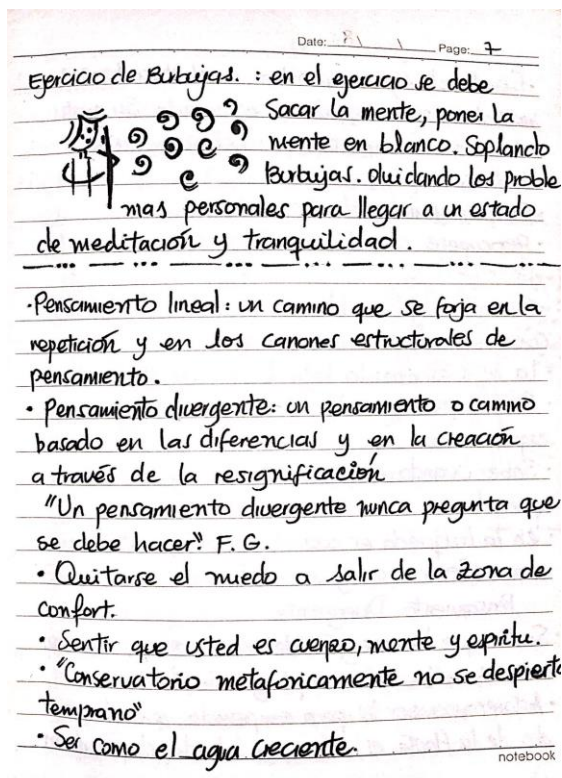 Date: Page: 7
Ejercicio de Burbujas. : en el ejercicio se debe
Sacar la mente, poner la
mente en blanco. Soplando
Burbujas. Olvidando los proble
mas personales para llegar a un estado
de meditación y tranquilidad.
·Pensamiento lineal: un camino que se forja en la
repetición y en los canones estructurales de
pensamiento.
· Pensamiento divergente: un pensamiento o camino
basado en las diferencias y en la creación
a través de la resignificación
"Un pensamiento divergente nunca pregunta que
se debe hacer". F. G.
· Quitarse el miedo a salir de la zona de
confort.
· Sentir que usted es cuerpo, mente y espíritu.
· "Conservatorio metaforicamente no se despierta
temprano"
· Ser como el agua creciente.
notebook